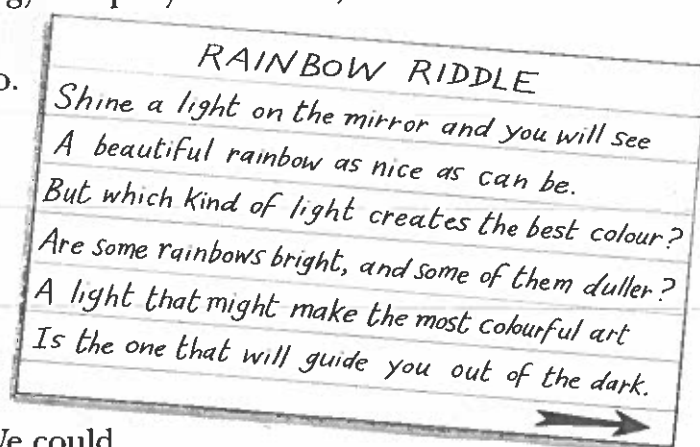 RAINBOW RIDDLE
Shine a light on the mirror and you will see
A beautiful rainbow as nice as can be.
But which kind of light creates the best colour?
Are some rainbows bright, and some of them duller?
A light that might make the most colourful art
Is the one that will guide you out of the dark.
could